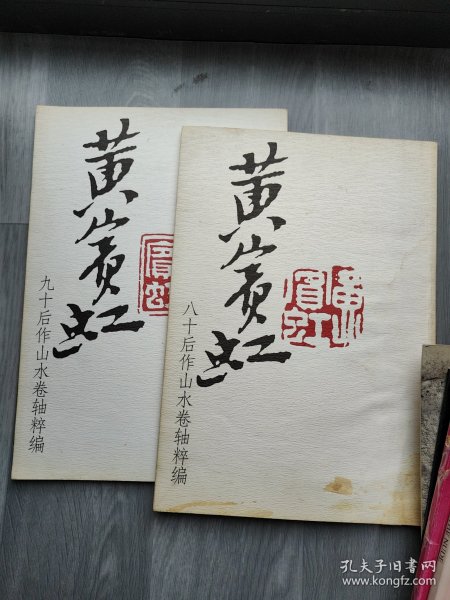 黄宾虹
九十后作山水卷轴粹编
黄宾虹
八十后作山水卷轴粹编
孔夫子旧书网
www.kongfz.com